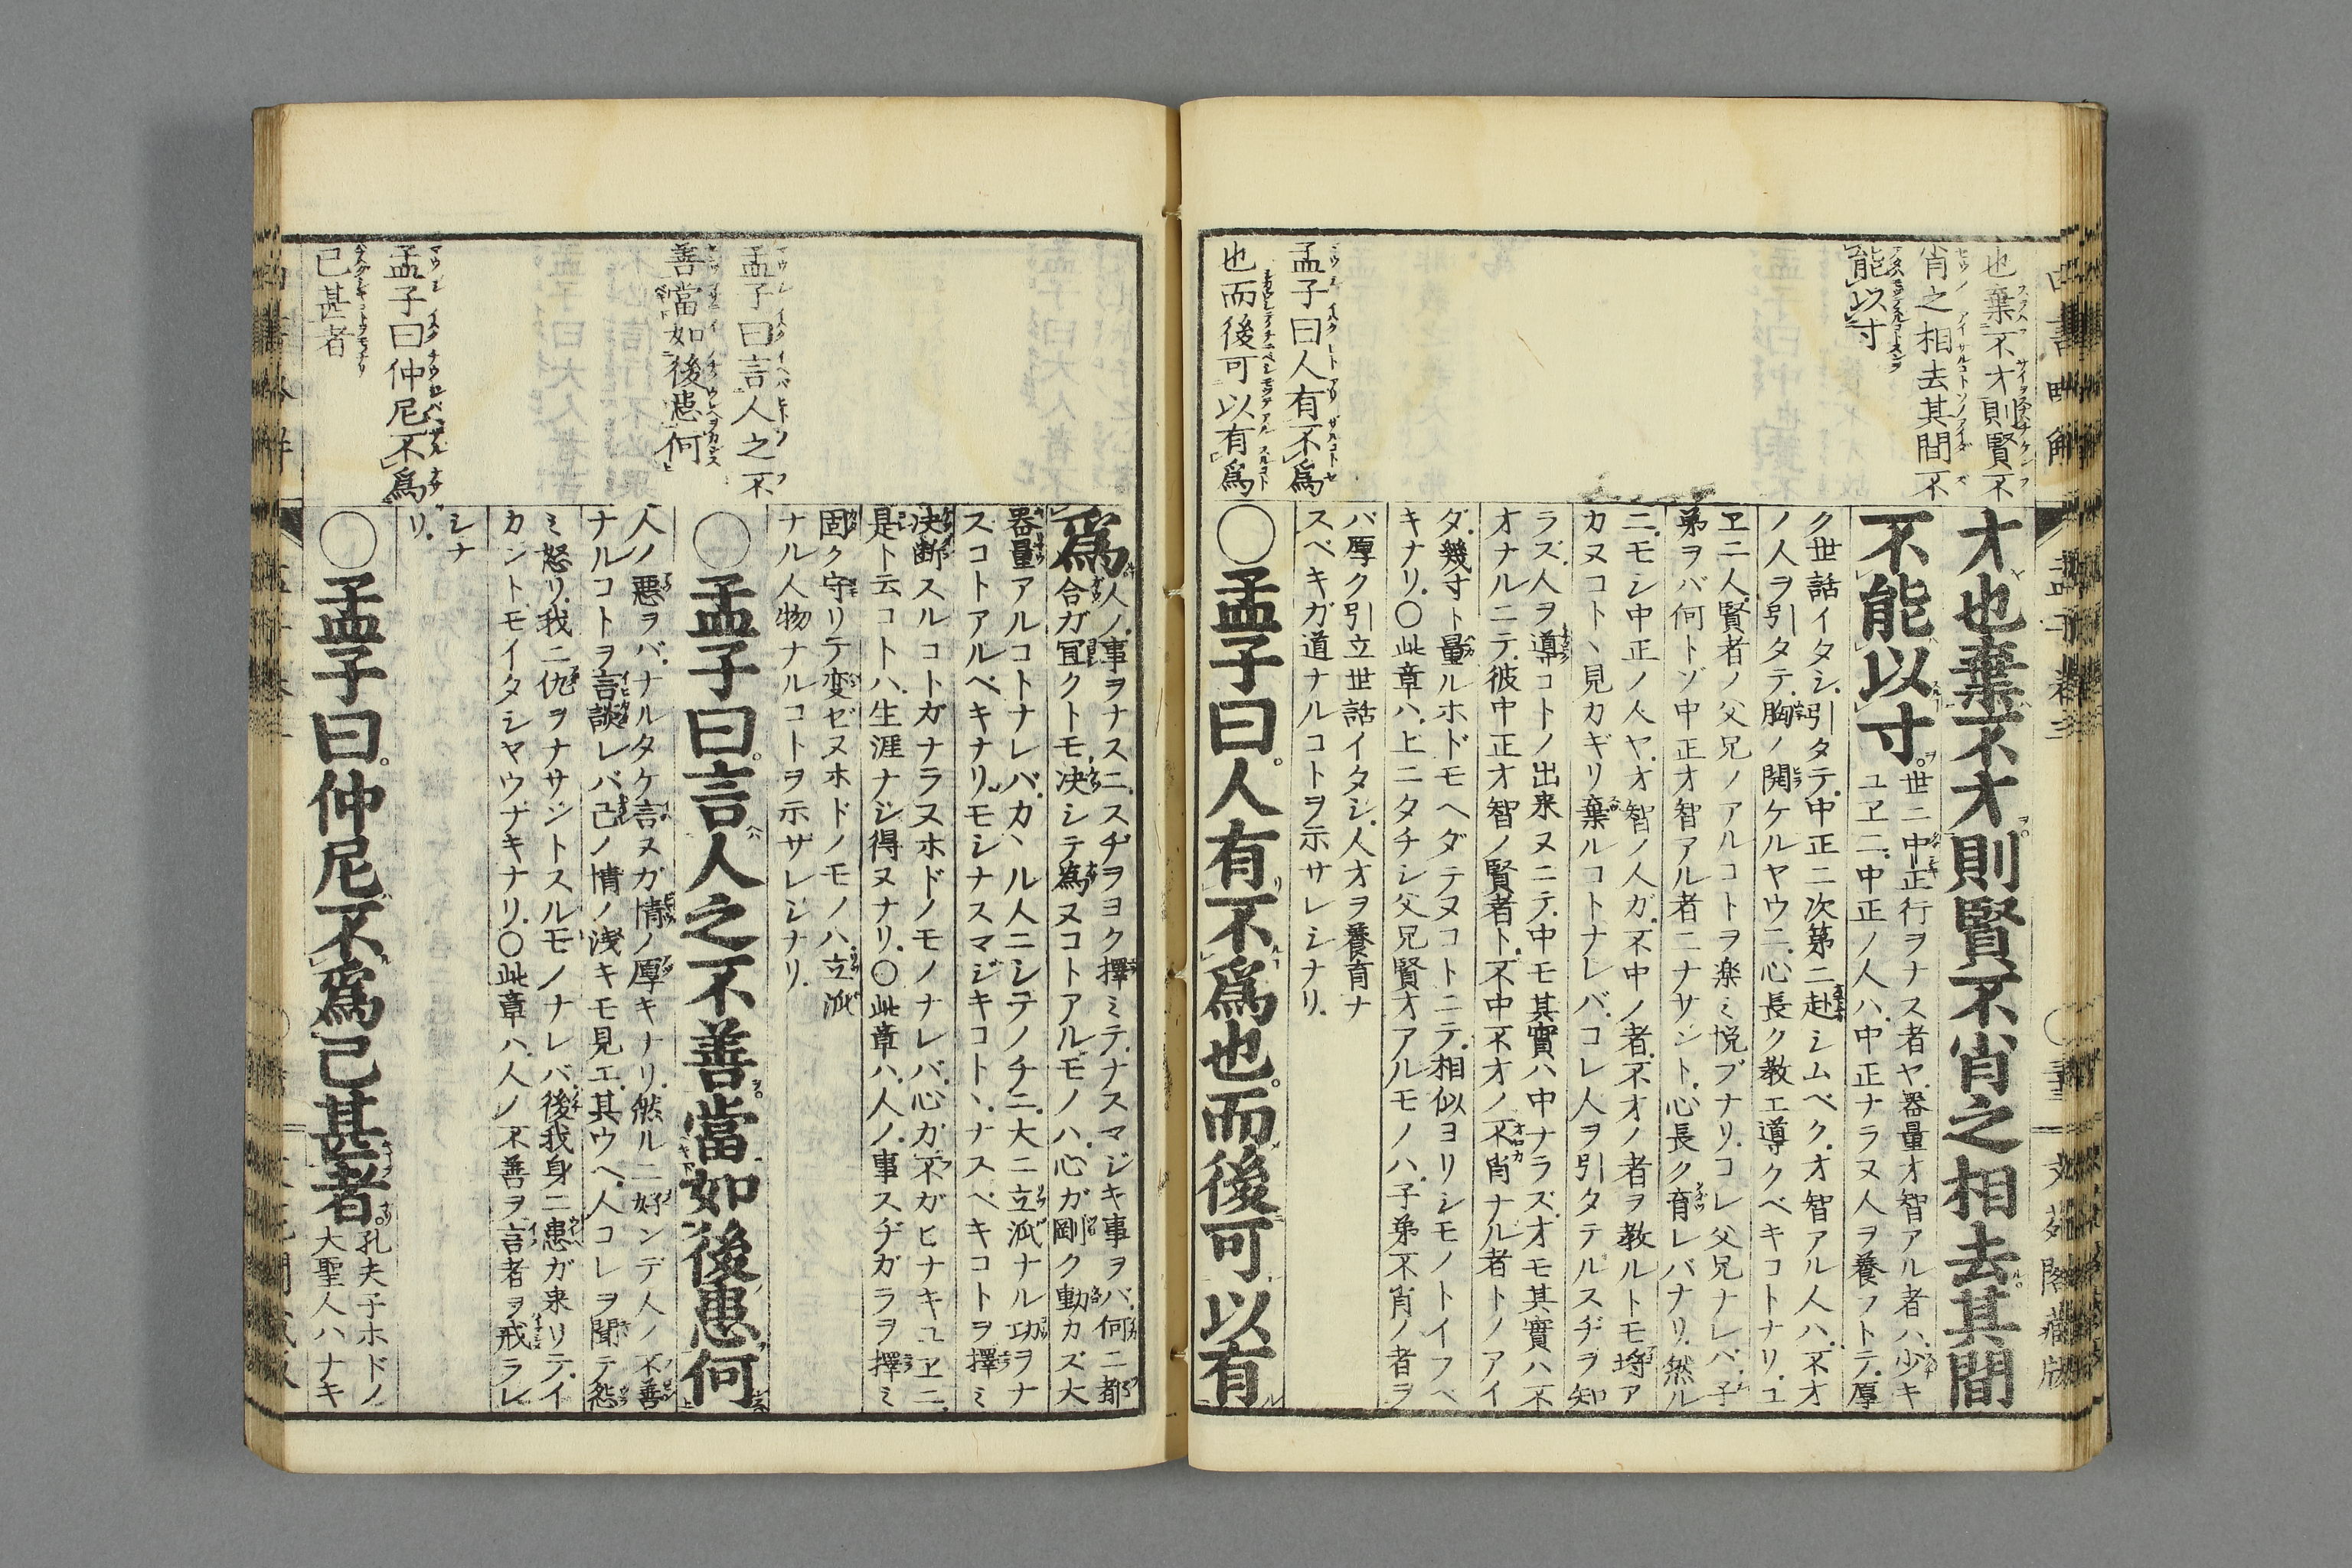 也棄不才則賢不
肖之相去其間不
能以寸
孟子曰人有不爲
也而後可以有爲
才也棄不才則賢不肖之相去其間
不能以寸。
世ニ中正行ヲナス者ヤ器量才智アル者ハ少キ
ユヱニ中正ノ人ハ中正ナラヌ人ヲ養フトテ厚
ク世話イタシ引タテ中正ニ次第ニ赴シムベク才智アル人ハ不才
ノ人ヲ引タテ胸ノ開ケルヤウニ心長ク教エ導クベキコトナリユ
ヱニ人賢者ノ父兄ノアルコトヲ楽ミ悦ブナリコレ父兄ナレバ子
弟ヲバ何トゾ中正才智アル者ニナサント心長ク育レバナリ然ル
ニモシ中正ノ人ヤ才智ノ人ガ不中ノ者不才ノ者ヲ教ルトモ埒ア
カヌコトヽ見カギリ棄ルコトナレバコレ人ヲ引タテルスヂヲ知
ラズ人ヲ導コトノ出来ヌニテ中モ其實ハ中ナラズ才モ其實ハ不
才ナルニテ彼中正才智ノ賢者ト不中不才ノ不肖ナル者トノアイ
ダ幾寸ト量ルホドモヘダテヌコトニテ相似ヨリシモノトイフベ
キナリ〇此章ハ上ニタチシ父兄賢才アルモノハ子弟不肖ノ者ヲ
バ厚ク引立世話イタシ人才ヲ養育ナ
スベキガ道ナルコトヲ示サレシナリ
〇孟子曰。人有不爲也。而後可以有
孟子曰言人之不
善當如後患何
孟子曰仲尼不爲
己甚者
爲
人ノ事ヲナスニスヂヲヨク擇ミテナスマジキ事ヲバ何ニ都
合ガ宜クトモ决シテ爲ヌコトアルモノハ心ガ剛ク動カズ大
器量アルコトナレバカヽル人ニシテノチニ大ニ立派ナル功ヲナ
スコトアルベキナリモシナスマジキコトヽナスベキコトヲ擇ミ
决断スルコトガナラヌホドノモノナレバ心ガ不ガヒナキユヱニ
是ト云コトハ生涯ナシ得ヌナリ〇此章ハ人ノ事スヂガラヲ擇ミ
固ク守リテ変ゼヌホドノモノハ立派
ナル人物ナルコトヲ示サレシナリ
〇孟子曰。言人之不善。當如後患何
人ノ悪ヲバナルタケ言ヌガ情ノ厚キナリ然ルニ好ンデ人ノ不善
ナルコトヲ言談レバ己ノ情ノ浅キモ見エ其ウヘ人コレヲ聞テ怨
ミ怒リ我ニ仇ヲナサントスルモノナレバ後我身ニ患ガ来リテイ
カントモイタシヤウナキナリ〇此章ハ人ノ不善ヲ言者ヲ戒ラレ
シナ
リ
〇孟子曰。仲尼不爲己甚者。
孔夫子ホドノ
大聖人ハナキ